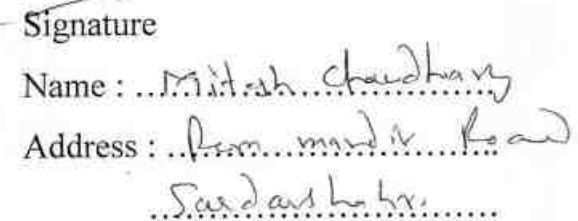 Signature
Name : Mitesh Chaudhary
Address : Ram mandir Road
Sardarshahr.